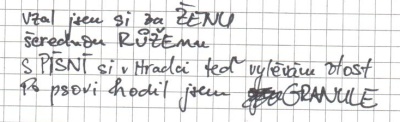 vzal jsem si za ŽENU
šerednou RŮŽENU
S PÍSNÍ si v Hradci teď vylévám zlost
Po psovi hodil jsem GRANULE